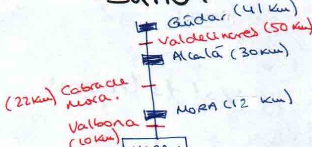 Gúdar (41 km)
Valdelinares (50 km)
Alcalá (30 km)
Cabra de
(22 km) Mora.
MORA (12 km)
Valbona
(10 km)